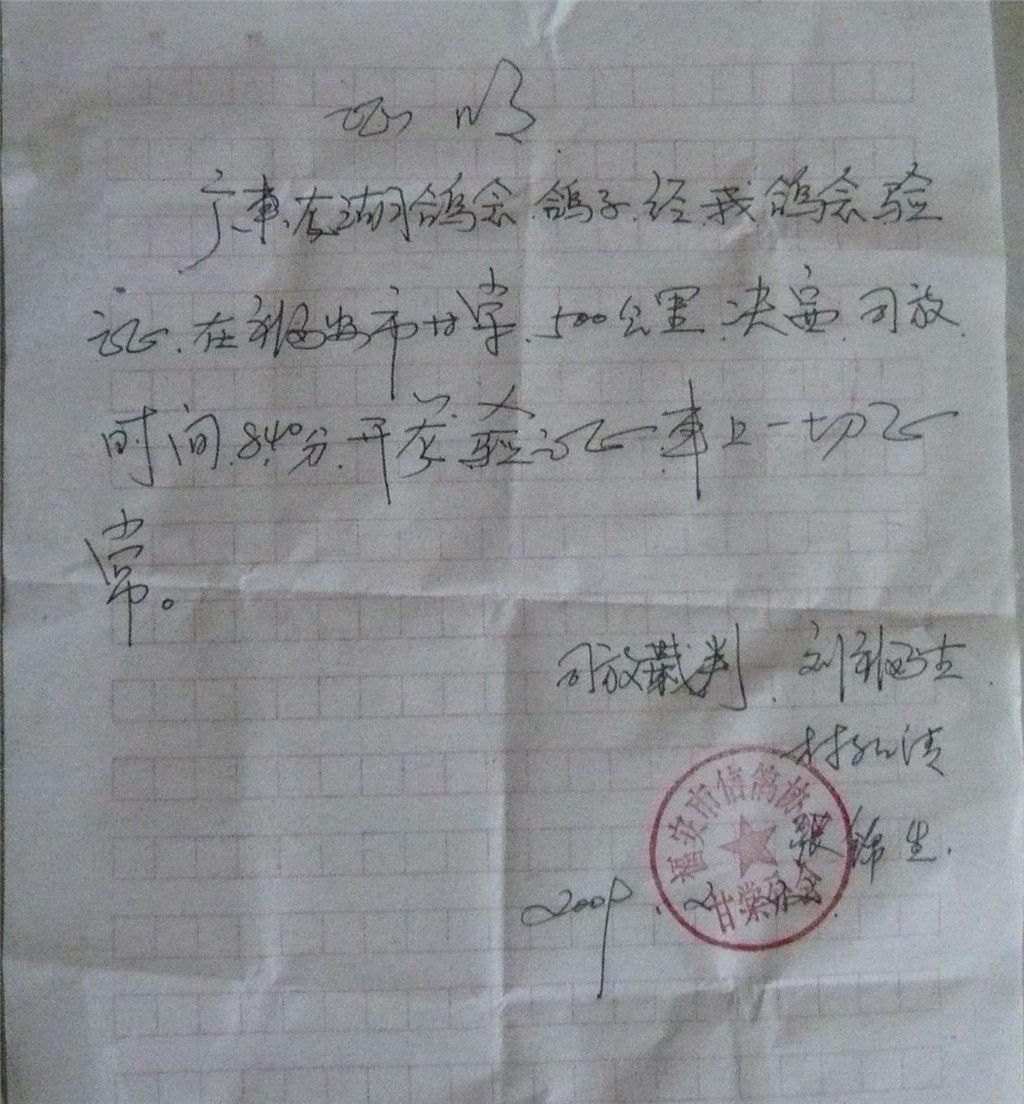 证明
广东 湖鸽会鸽子.经我鸽会验
证.在福安市甘棠.500公里.决赛.司放.
时间.8.40分.开 验证.车上一切正
常。
司放裁判.刘福生.
林 清
张锦生.
2009.2
福安市信鸽协会
甘棠分会